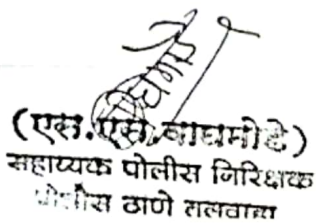 (एस.एस.वाघमोडे)
सहाय्यक पोलीस निरिक्षक
पोलीस ठाणे तलवाडा